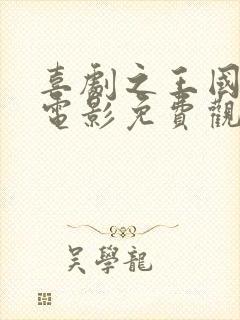 喜劇之王國
電影免費觀
吳學龍